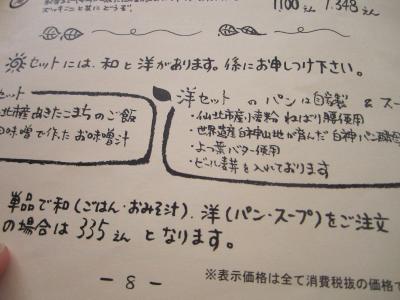 1,100えん 1,348えん
セットには、和と洋があります。係にお申しつけ下さい。
セット
北産あきたこまちのご飯
味噌で作ったお味噌汁
洋セット のパンは自家製 & ス
・仙北市産小麦粉 ねばり腰使用
・世界遺産白神山地が育んだ白神パン酵母
・よつ葉バター使用
・ビール酵母を入れております
単品で和(ごはん・おみそ汁)、洋(パン・スープ)をご注文
の場合は 335えん となります。
- 8 -
※表示価格は全て消費税抜の価格で